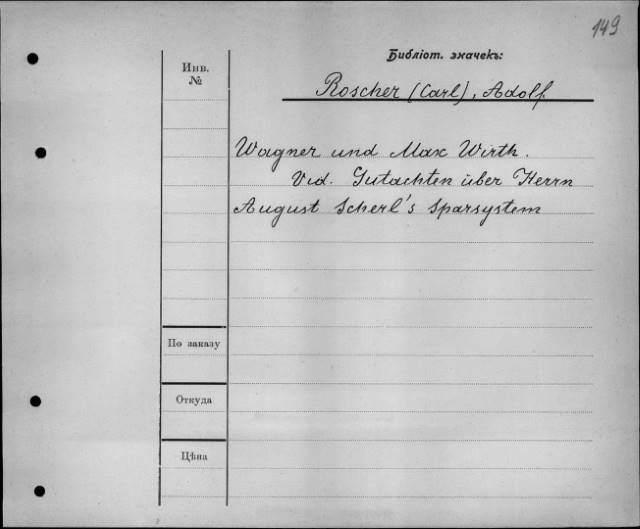 149
Библіот. значекъ:
Инв.
№
Roscher (Carl), Adolf
Wagner und Max Wirth.
Vid. Gutachten über Herrn
August Scherl's Sparsystem
По заказу
Откуда
Цѣна